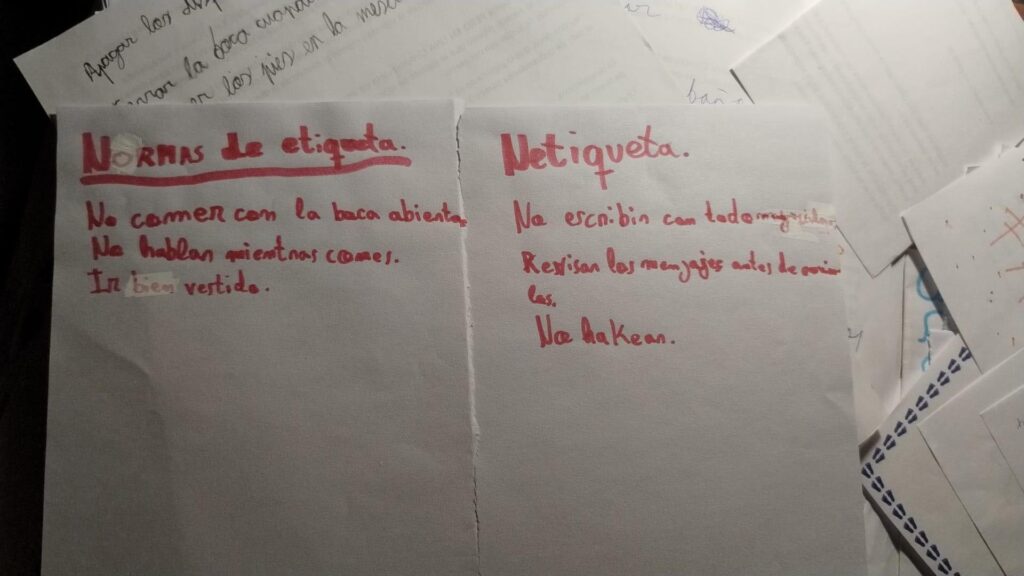 Apagar los
la boca cuando
los pies en la mesa
NORMAS de etiqueta.
No comer con la boca abierta
No hablar mientras comes.
Ir bien vestido.
Netiqueta.
No escribir con todo mayusculas.
Revisar los mensajes antes de enviar
los.
No hakear.